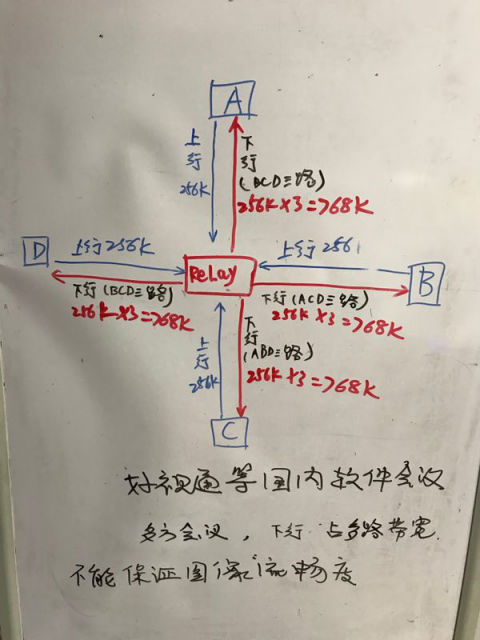 A
上行
256K
下行
(BCD三路)
256K×3=768K
D
上行256K
上行256
Relay
B
下行(BCD三路)
256K×3=768K
下行(ACD三路)
256K×3=768K
上行
256K
下行
(ABD三路)
256K×3=768K
C
好视通等国内软件会议
多方会议,下行占多路带宽.
不能保证图像流畅度